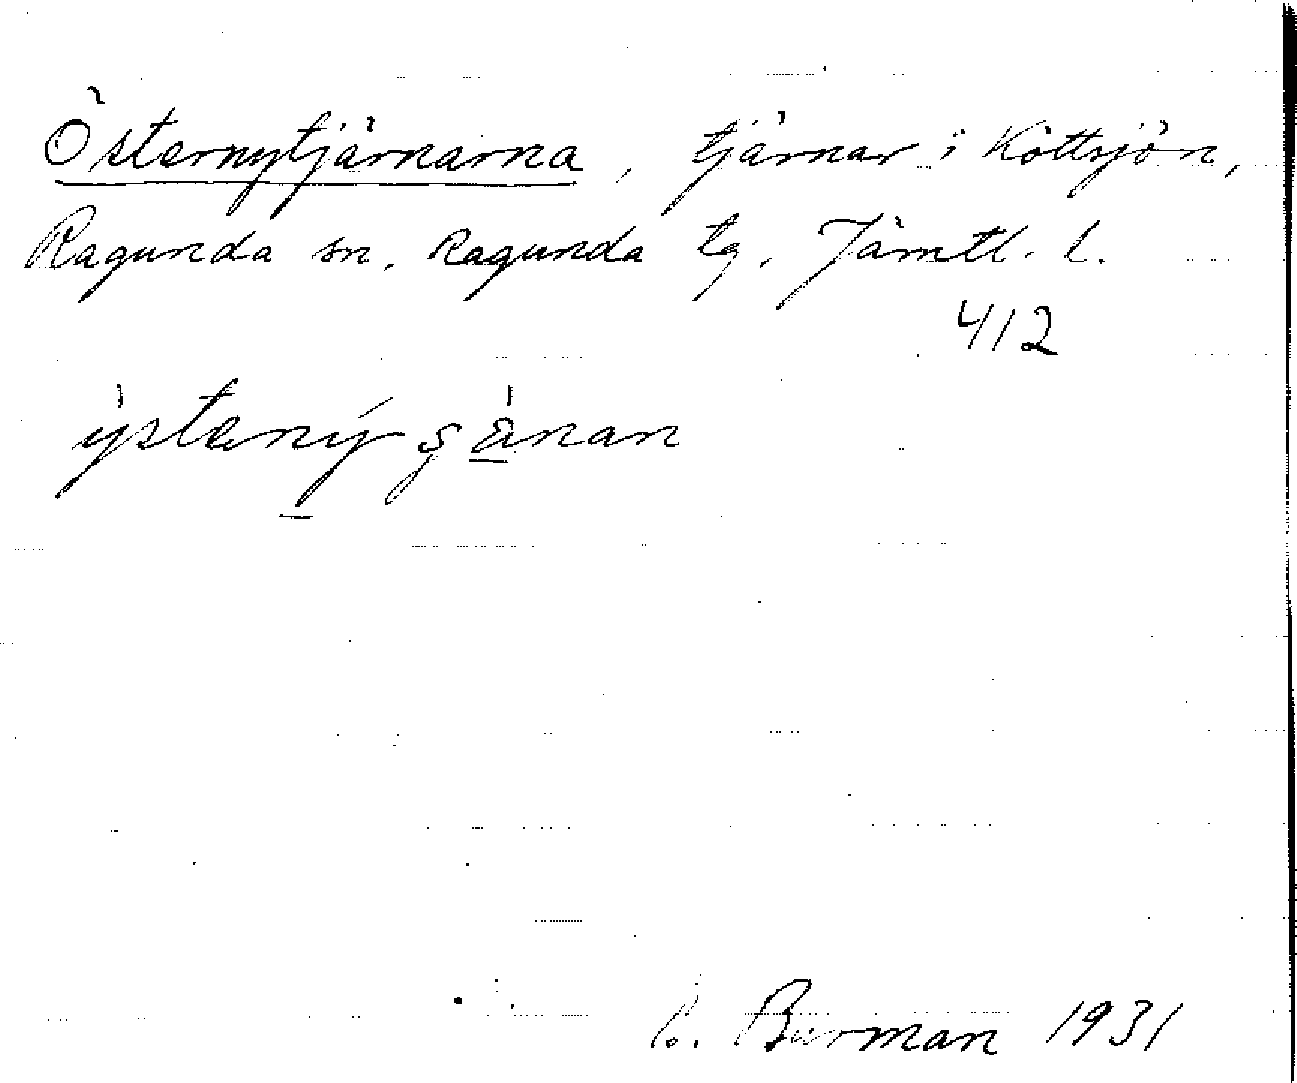 Österny­tjärnarna, tjärnar i Köttsjön,
Ragunda sn. Ragunda tg. Jämtl. l.
412
ÿstanýsänan
Burman 1931